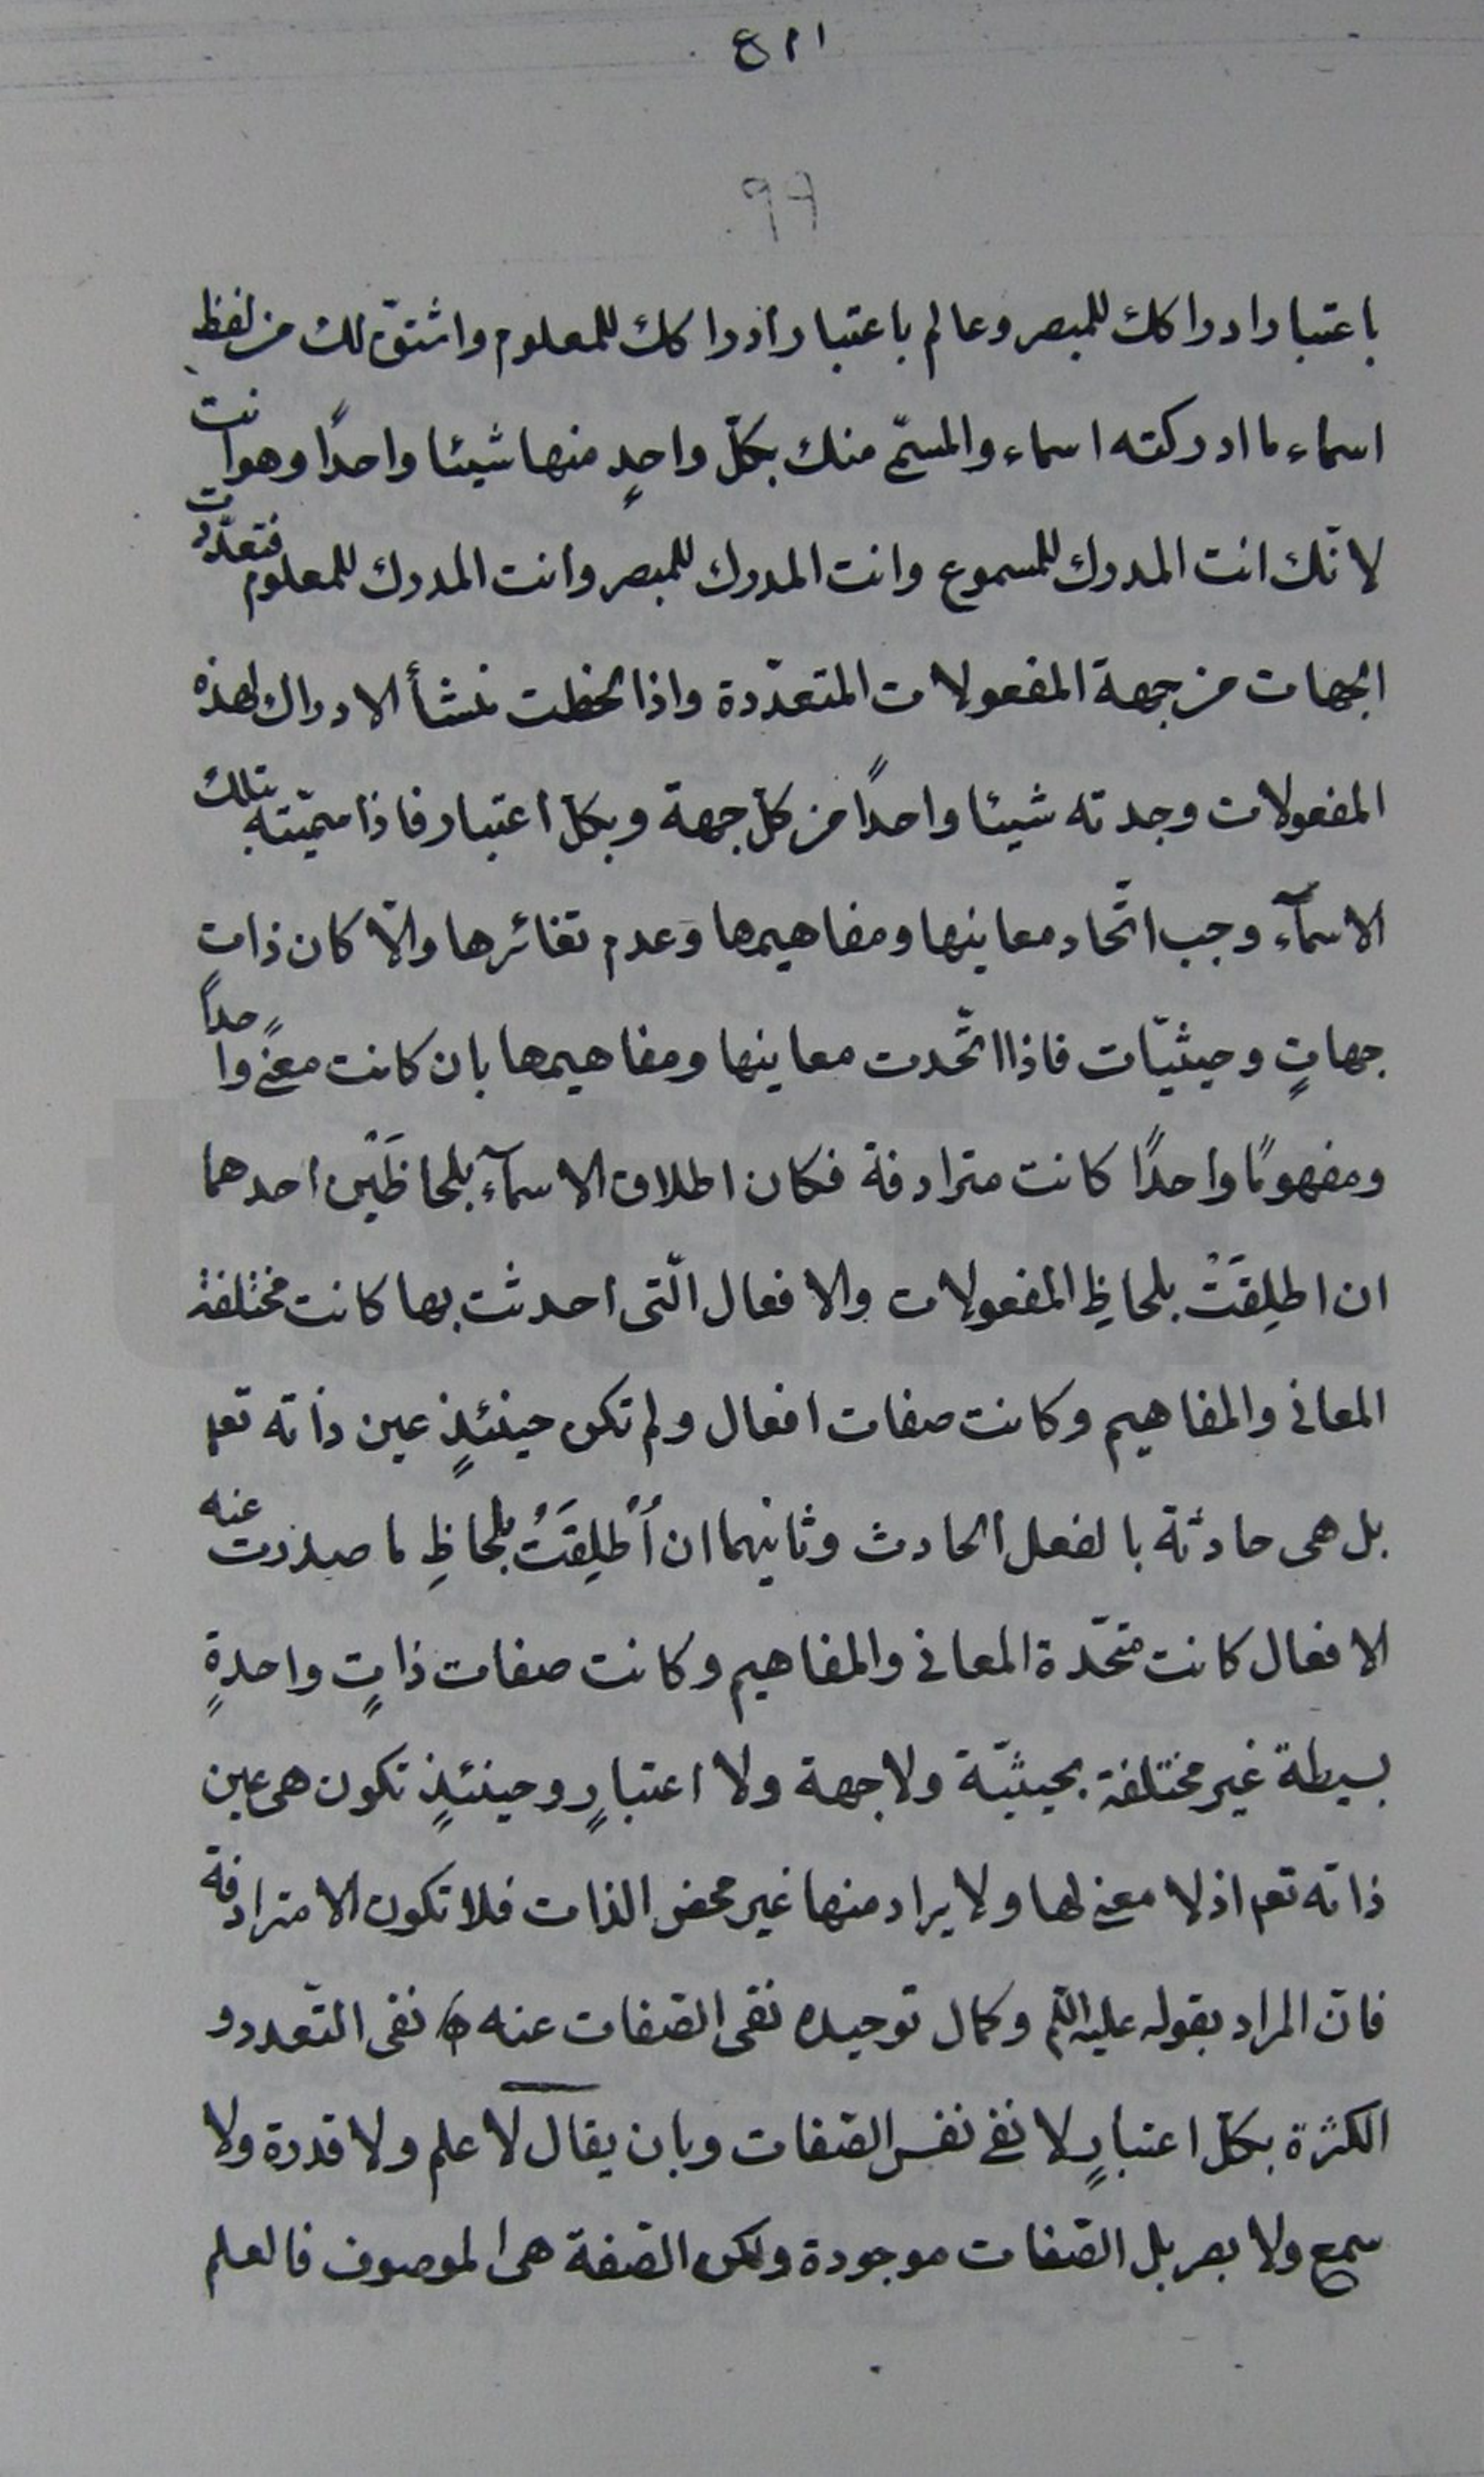 ۴۱۱
۹۹
باعتبار ادراكك للمبصر وعالم باعتبار ادراكك للمعلوم واشتقّ لك من لفظ
اسماء ما ادركته اسماء والمسمّى منك بكلّ واحدٍ منها شيئا واحدًا وهو انت
لانّك انت المدرك للمسموع وانت المدرك للمبصر وانت المدرك للمعلوم فتعدّدت
الجهات من جهة المفعولات المتعدّدة واذا لحظت منشأ الادراك لهذه
المفعولات وجدته شيئا واحدًا من كلّ جهة وبكلّ اعتبار فاذا سمّيته بتلك
الاسمآء وجب اتّحاد معاينها ومفاهيمها وعدم تغائرها والّا كان ذات
جهاتٍ وحيثيّات فاذا اتّحدت معاينها ومفاهيمها بان كانت معنىً واحداً
ومفهومًا واحدًا كانت مترادفة فكان اطلاق الاسمآء بلحاظَيْن احدهما
ان اطلِقَتْ بلحاظِ المفعولات والافعال الّتى احدثت بها كانت مختلفة
المعانى والمفاهيم وكانت صفات افعال ولم تكن حينئذٍ عين ذاته تعم
بل هى حادثة بالفعل الحادث وثانيهما ان اُطْلِقَتْ بلحاظِ ما صدرت عنه
الافعال كانت متّحدة المعانى والمفاهيم وكانت صفات ذاتٍ واحدةٍ
بسيطة غير مختلفة بحيثيّة ولا جهة ولا اعتبارٍ وحينئذٍ تكون هى عين
ذاته تعم اذ لا معنى لها ولا يراد منها غير محض الذات فلا تكون الا مترادفة
فانّ المراد بقوله عليه السلم وكمال توحيده نفى الصّفات عنه نفى التّعدد و
الكثرة بكلّ اعتبارٍ لا نفى نفس الصّفات وبان يقال لا علم ولا قدرة ولا
سمع ولا بصر بل الصّفات موجودة ولكن الصّفة هى الموصوف فالعلم